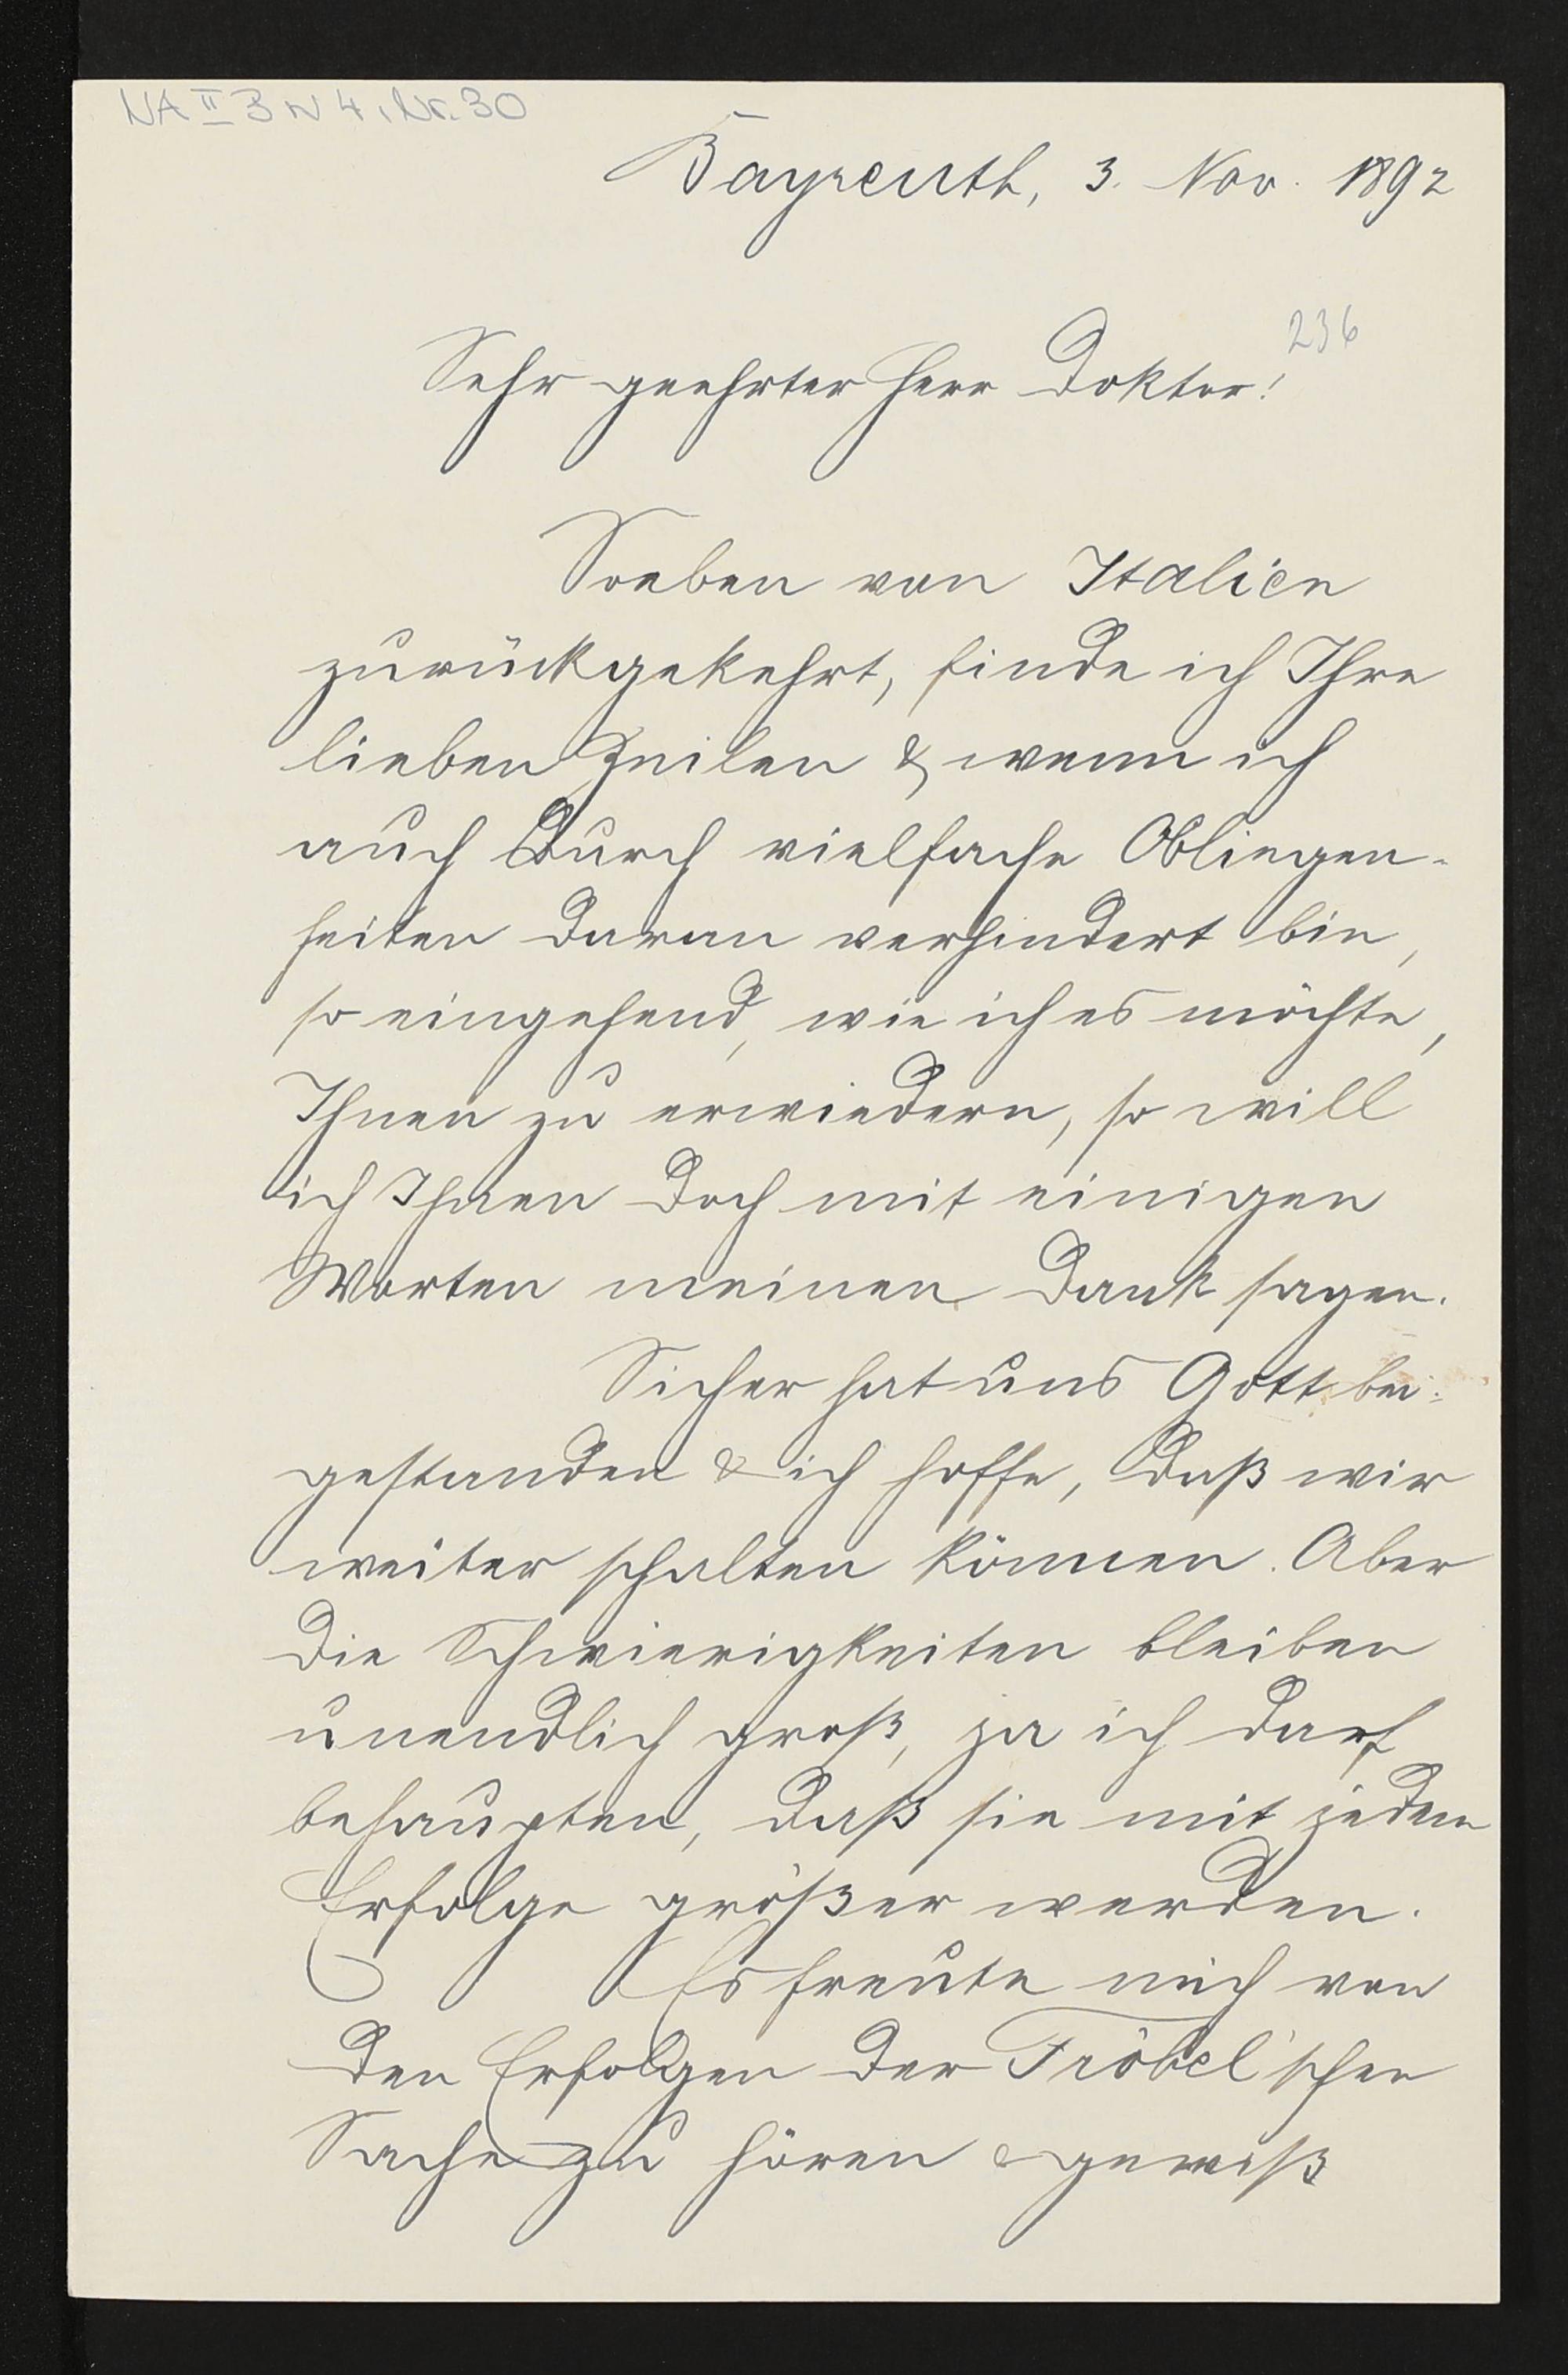 NA II B N 4, Nr. 30
Bayreuth, 3. Nov. 1892
236
Sehr geehrter Herr Doktor!
Soeben von Italien
zurückgekehrt, finde ich Ihre
lieben Zeilen & wenn ich
auch durch vielfache Obliegen-
heiten daran verhindert bin,
so eingehend, wie ich es möchte,
Ihnen zu erwiedern, so will
ich Ihnen doch mit einigen
Worten meinen Dank sagen.
Sicher hat uns Gott bei-
gestanden & ich hoffe, daß wir
weiter schalten können. Aber
die Schwierigkeiten bleiben
unendlich groß, ja ich darf
behaupten, daß sie mit jedem
Erfolge größer werden.
Es freute mich von
den Erfolgen der Fröbel'schen
Sache zu hören & gewiß